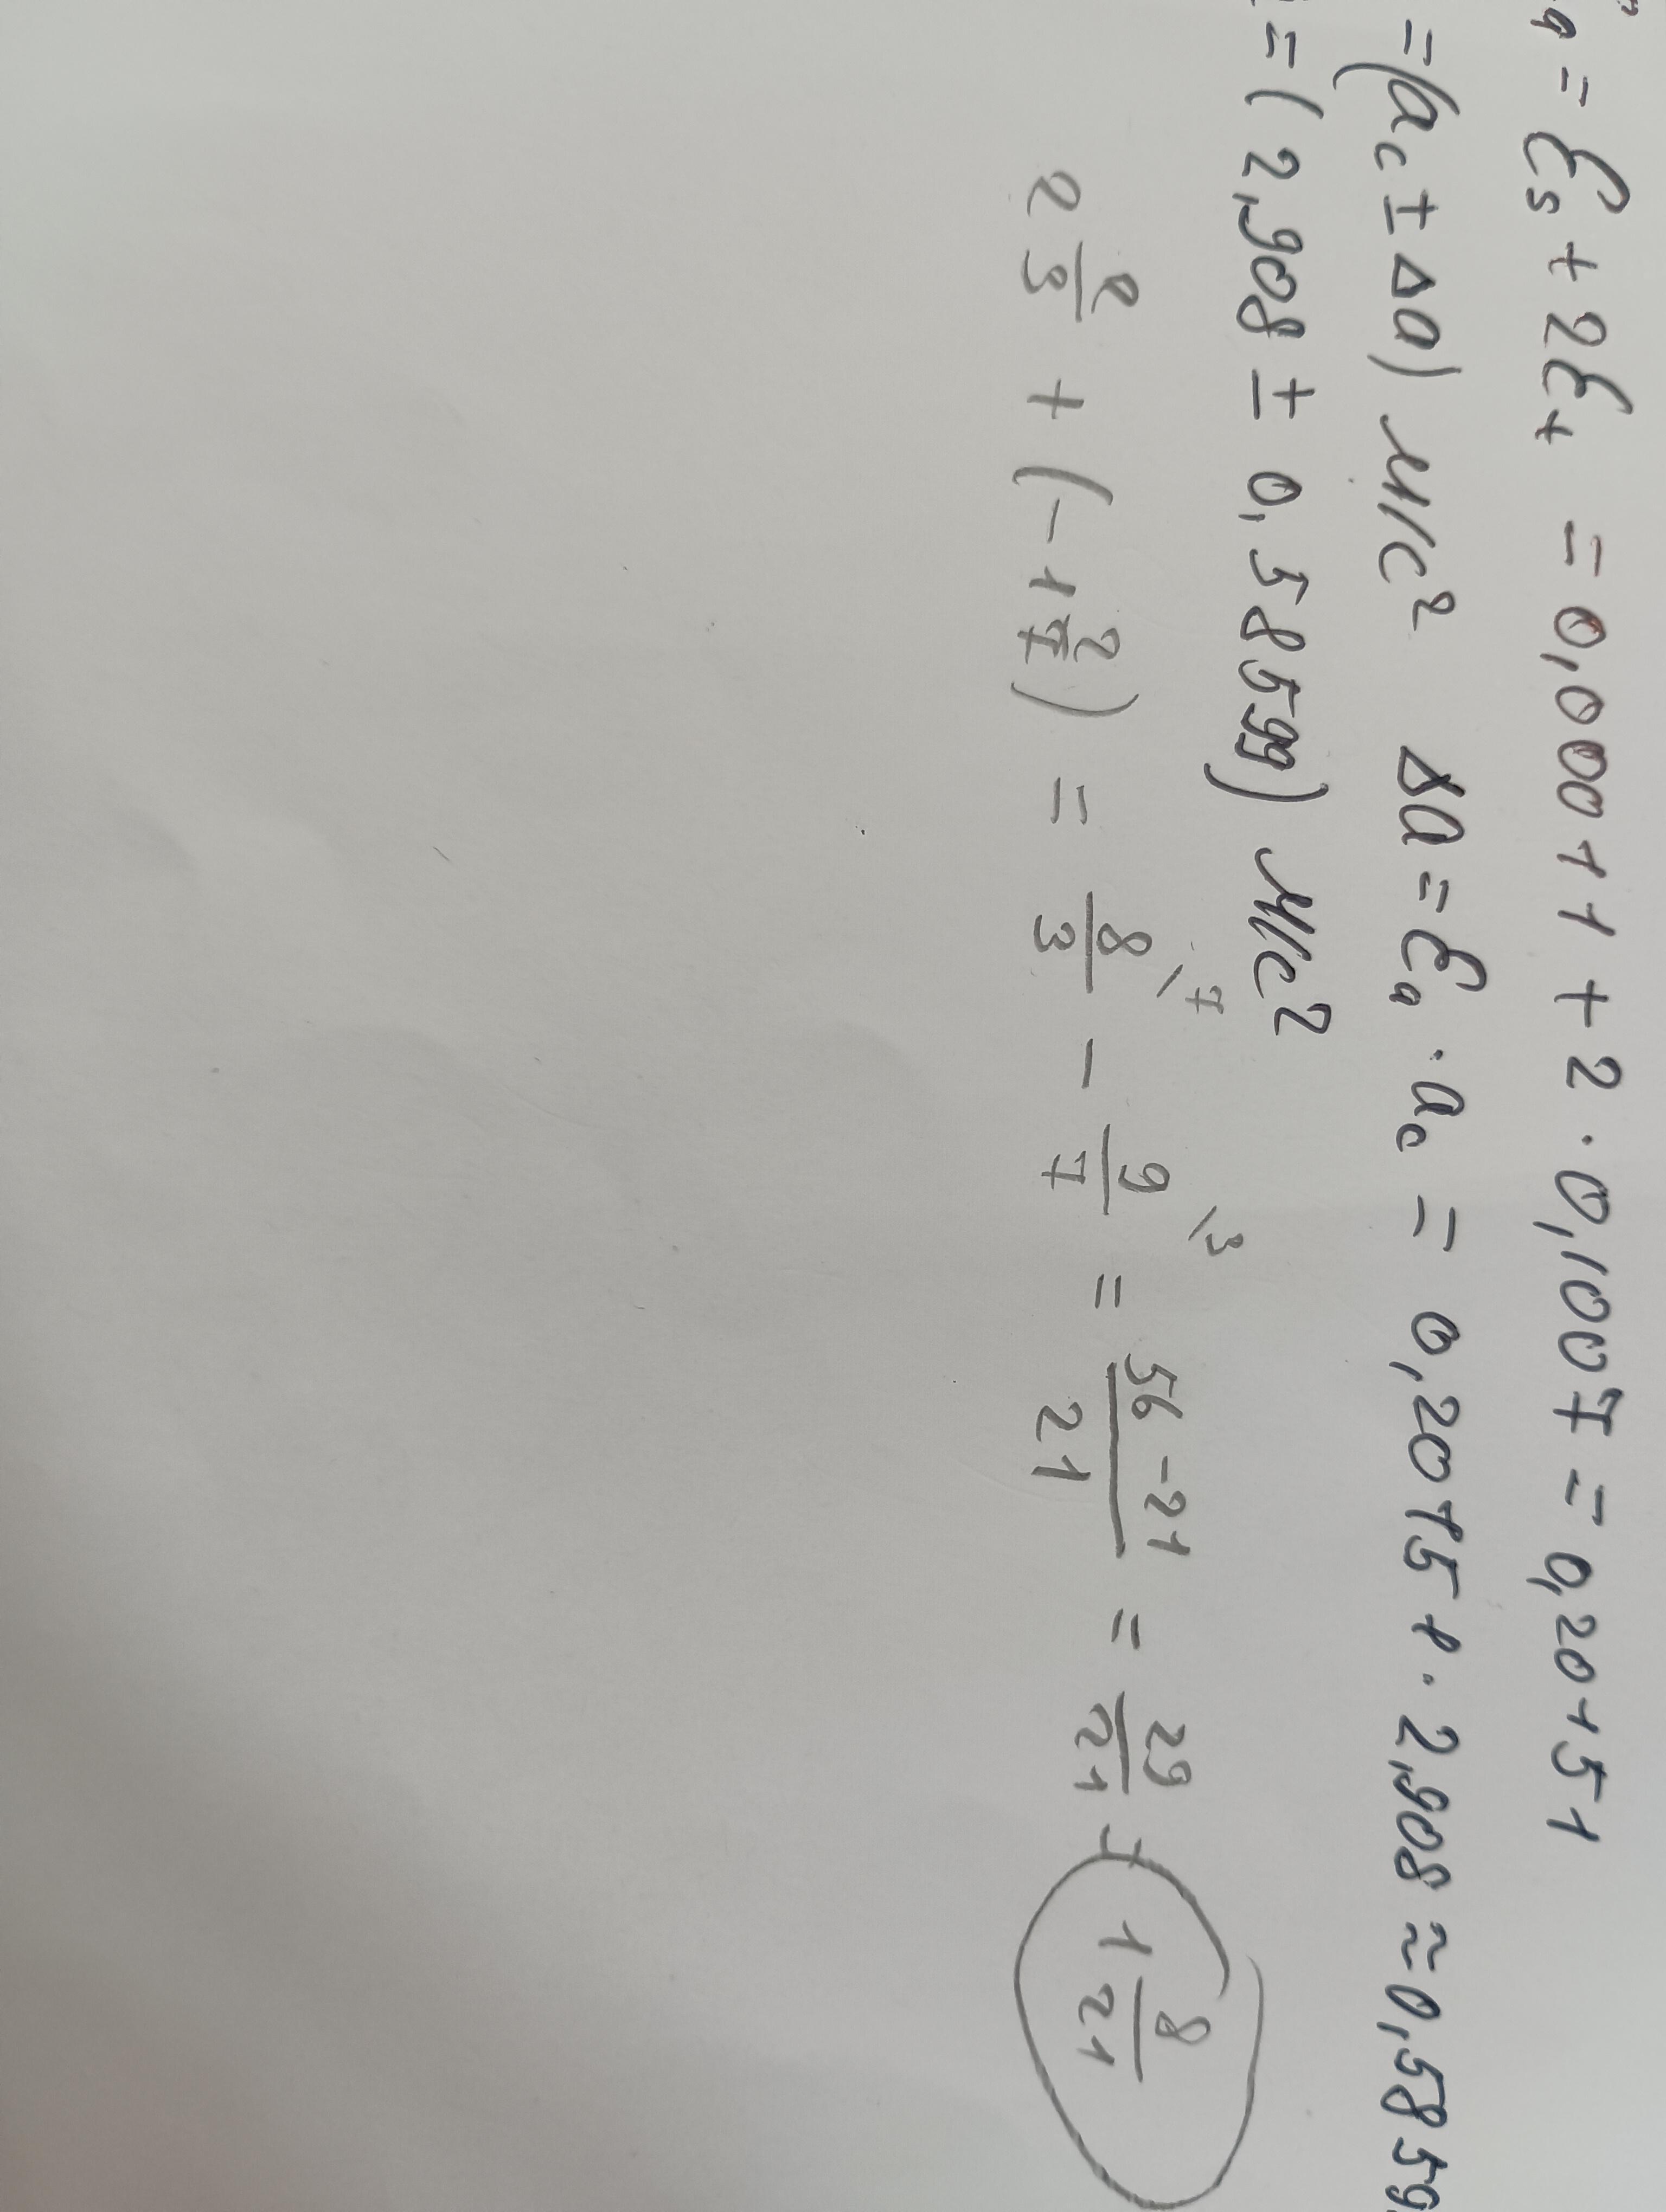 a = ℰs + 2ℰt = 0,00011 + 2 · 0,1007 = 0,20151
= (ac ± Δa) м/с² Δa = ℰa · ac = 0,20151 · 2,908 ≈ 0,5859
= (2,908 ± 0,58599) м/с²
2 2/3 + (-1 2/7) = 8/3 \7 - 9/7 \3 = 56-21/21 = 29/21 = 1 8/21